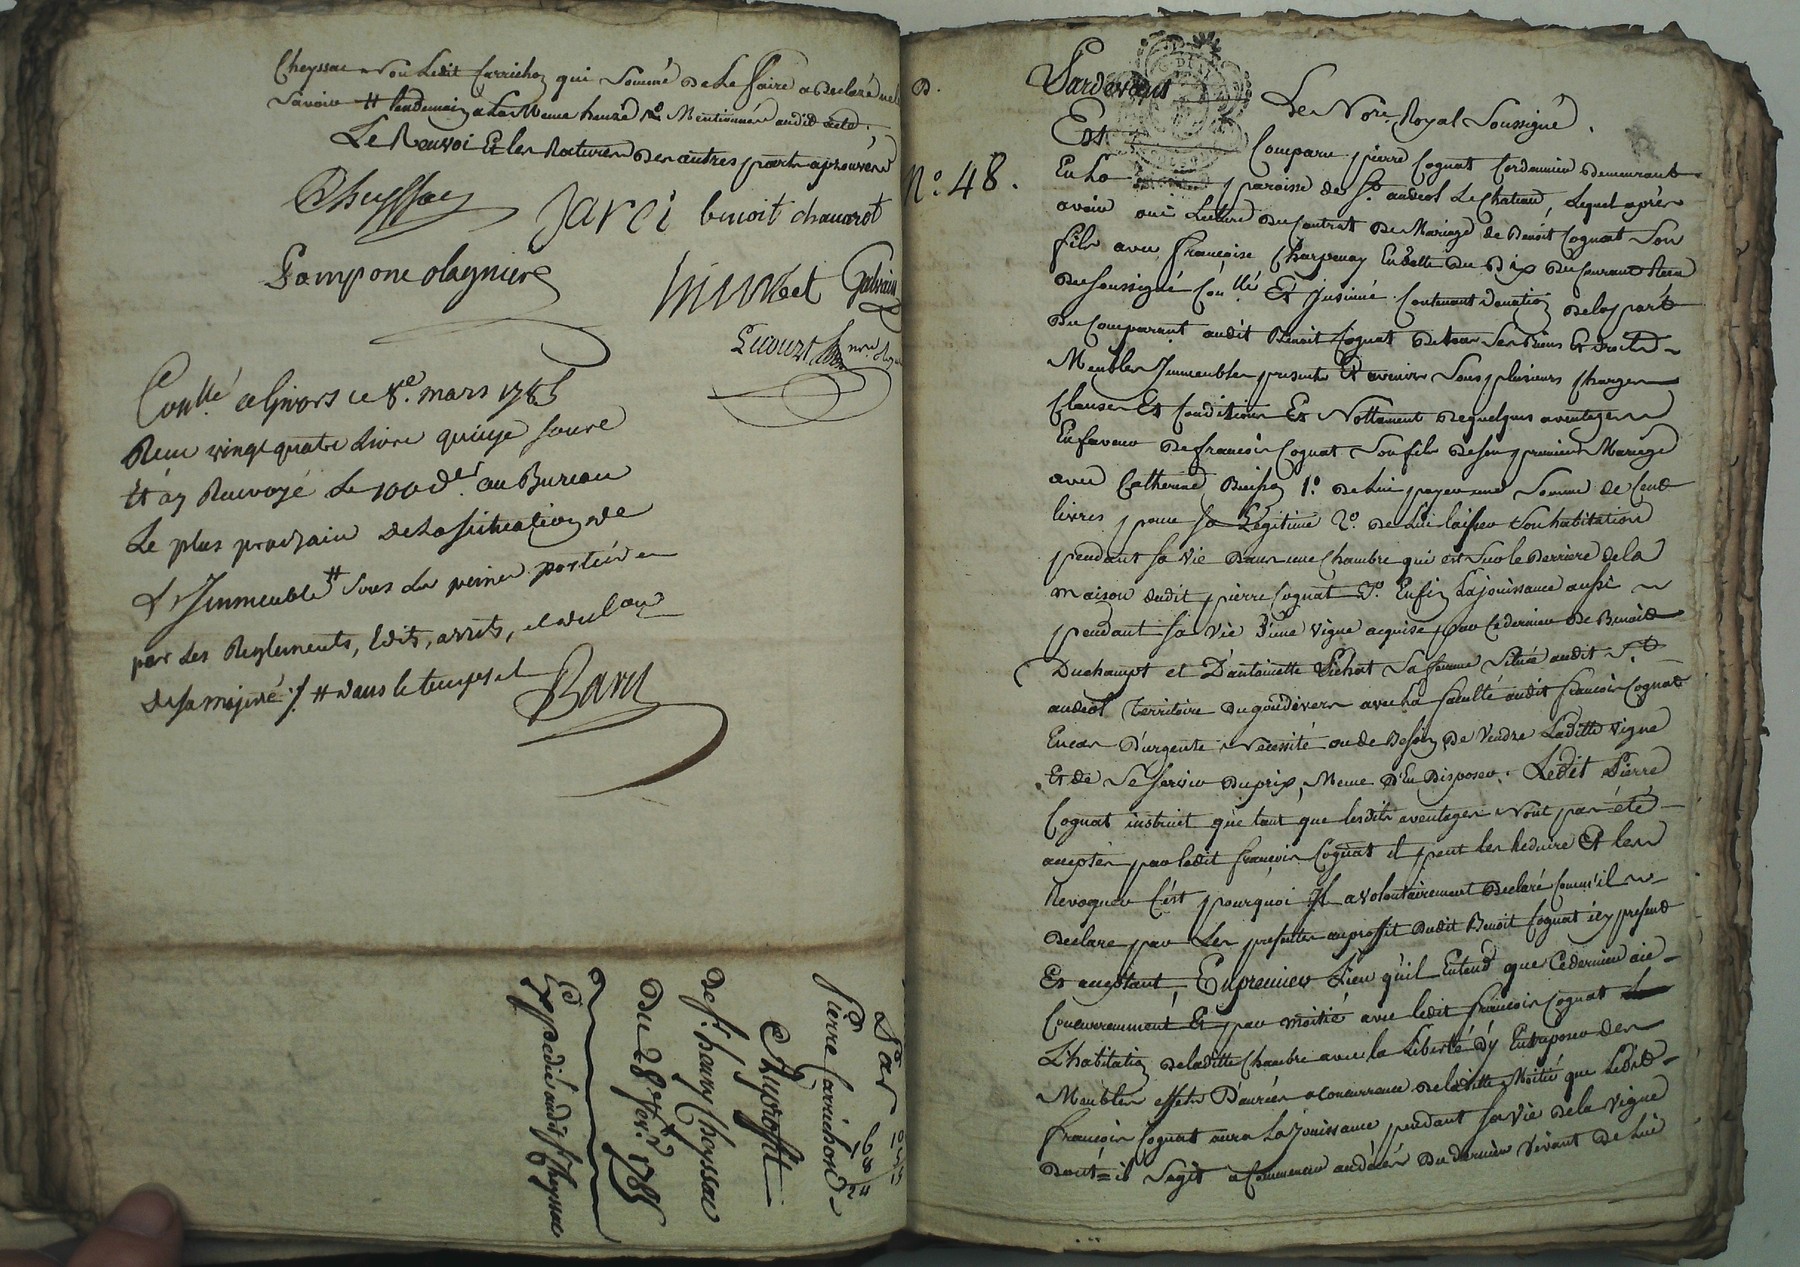 Cheyssac non Ledit Carrichon qui Sommé De Le faire a Declaré ne
Savoir # Lendemain a La Meme heure Mentionnée audit acte.
Le Renvoi Et les Ratures Des autres parts aprouvés
Cheyssac
Jarei benoit chavarot
Pompone olagniere
Lecourt nre
Conllé a Givors ce 8e. mars 1785
Recu vingt quatre Livre quinze sours
Et ay Renvoyé Le 100 dr. au Bureau
Le plus prochain De La situation De
L'Immeuble # sous Les peines portées
par Les Reglements, Edits, arrets,
De sa majesté ·/. # dans le temps et
Bary
Par
Pierre Carrichon
Au proffit
De Sr. hanry Cheyssac
Du 28e fevr. 1785
Expedié audit Sr. Cheyssac
10
24 15
N.o 48.
Pardevant
Le Nore. Royal Soussigné.
Est Comparu pierre Cognat Cordonnier Demeurant
En La paroisse de St. andeol Le Chateau, Lequel après
avoir oui Lecture Du Contrat De Mariage de Benoit Cognat Son
fils avec françoise Charpenay En Datte Du Dix Du Courant Recu
Du Soussigné Conllé Et Insinué Contenant Donation De la part
Du Comparant audit Benoit Cognat De tous Ses Biens Et Droits
Meubles Immeubles presents Et avenir Sous plusieurs Charges
Clauses Et Conditions Et Nottament De quelques aventages
En faveur De françois Cognat Son fils De Son premier Mariage
avec Catherine Buisson 1.o De Lui payer une Somme de Cent
livres pour Sa Légitime 2.o De Lui laisser Son habitation
pendant Sa Vie Dans une Chambre qui est Sur le Derriere de la
maison dudit pierre Cognat 3.o Enfin La jouissance aussi
pendant Sa Vie D'une Vigne acquise par Ce dernier De Benoit
Duchampt et D'antoinette Vichat Sa femme Située audit St.
andeol territoire Du goudivers avec La faculté audit françois Cognat
En cas D'urgente Necessité ou de Besoin De Vendre Laditte Vigne
Et de Se Servir Du prix, Meme D'En Disposer. Ledit Pierre
Cognat instruit que tant que lesdits aventages N'ont pas été
acceptés par ledit françois Cognat il peut les Reduire Et les
Revoquer C'est pourquoi Il a Volontairement Declaré Comm'il
Declare par Les presentes au proffit Dudit Benoit Cognat icy present
Et acceptant, En premier Lieu qu'il Entend que Ce dernier aie
Concurremment Et par moitié avec ledit françois Cognat
L'habitation De laditte Chambre avec la Liberté d'y Entreposer des
Meubles effets Denrées a Concurrance De laditte Moitié que Ledit
françois Cognat aura La Jouissance pendant Sa Vie De la Vigne
Dont il S'agit a Commencer au décés Du dernier Vivant De Lui